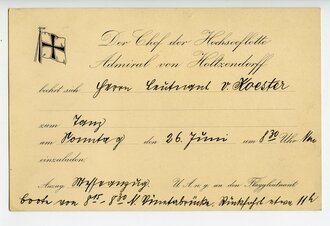 Der Chef der Hochseeflotte
Admiral von Holtzendorff
beehrt sich Herrn Leutnant v. Koester
zum Tanz
am Sonntag den 26. Juni um 8 30 Uhr Nm
einzuladen.
Anzug: Messeanzug U. A. w. g. an den Flaggleutnant
Boote von 8 15 - 8 30 N. Vinetabrücke. Rückfahrt etwa 11 h